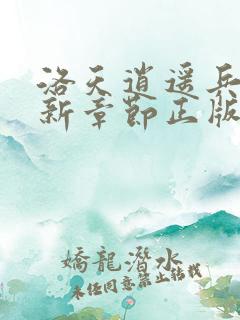 洛天逍遥兵
新章节正版
矫龙潜水
未经同意禁止转载